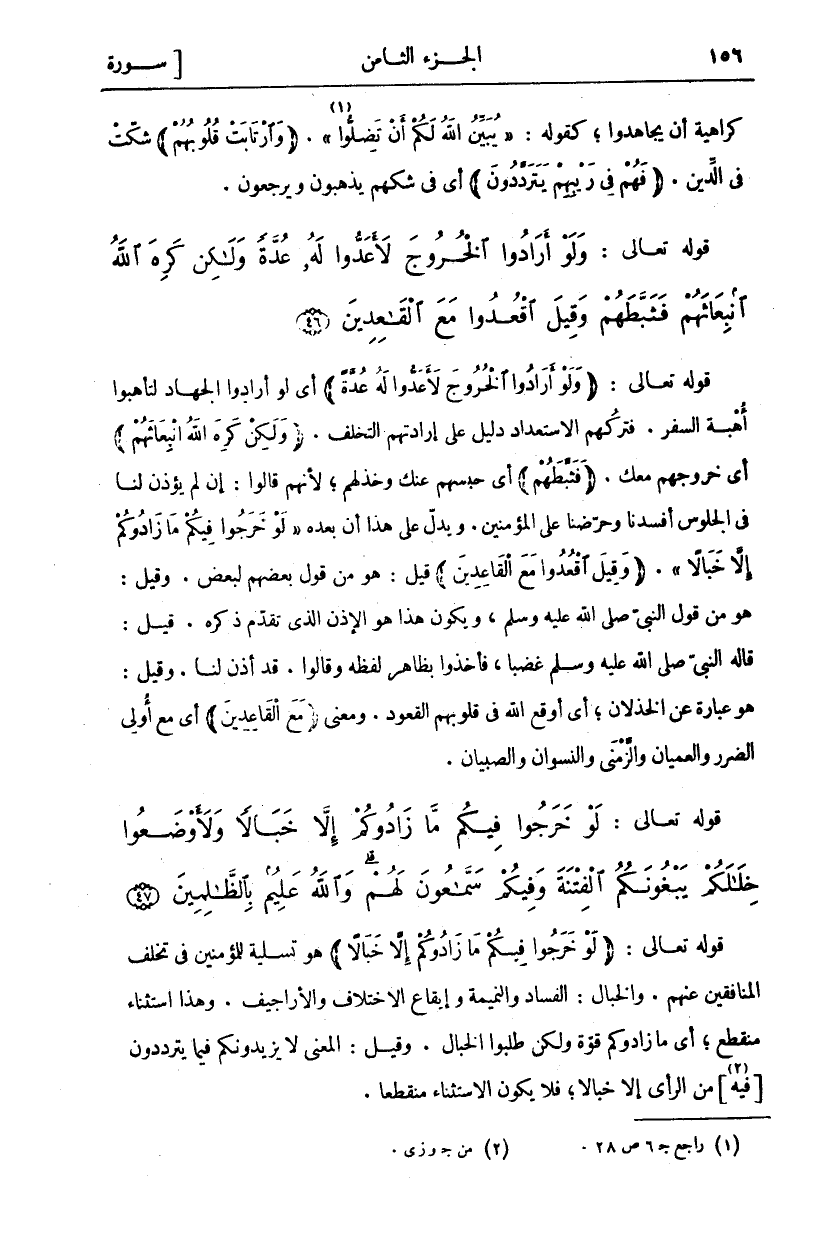 ١٥٦ الجـزء الثـامن [ ســورة
كراهية أن يجاهدوا ؛ كقوله : « يُبَيِّنُ اللهُ لَكُمْ أَنْ تَضِلُّوا (١) » . ﴿ وَٱرْتَابَتْ قُلُوبُهُمْ ﴾ شكّت
فى الدِّين . ﴿ فَهُمْ فِى رَيْبِهِمْ يَتَرَدَّدُونَ ﴾ أى فى شكهم يذهبون ويرجعون .
قوله تعـالى : وَلَوْ أَرَادُوا ٱلْخُـرُوجَ لَأَعَدُّوا لَهُۥ عُدَّةً وَلَـٰكِن كَرِهَ ٱللَّهُ
ٱنۢبِعَاثَهُمْ فَثَبَّطَهُمْ وَقِيلَ ٱقْعُـدُوا مَعَ ٱلْقَـٰعِدِينَ ﴿٤٦﴾
قوله تعـالى : ﴿ وَلَوْ أَرَادُوا ٱلْخُرُوجَ لَأَعَدُّوا لَهُ عُدَّةً ﴾ أى لو أرادوا الجهـاد لتأهبوا
أُهْبـة السفر . فتركُهم الاستعداد دليل على إرادتهم التخلف . ﴿ وَلَكِنْ كَرِهَ اللهُ انْبِعَاثَهُمْ ﴾
أى خروجهم معك . ﴿ فَثَبَّطَهُمْ ﴾ أى حبسهم عنك وخذلهم ؛ لأنهم قالوا : إن لم يؤذن لنـا
فى الجلوس أفسدنا وحرّضنا على المؤمنين . ويدلّ على هذا أن بعده « لَوْ خَرَجُوا فِيكُمْ مَا زَادُوكُمْ
إِلَّا خَبَالًا » . ﴿ وَقِيلَ ٱقْعُدُوا مَعَ الْقَاعِدِينَ ﴾ قيل : هو من قول بعضهم لبعض . وقيل :
هو من قول النبىّ صلى الله عليه وسلم ، ويكون هذا هو الإذن الذى تقدّم ذكره . قيـل :
قاله النبىّ صلى الله عليه وسـلم غضبا ، فأخذوا بظاهر لفظه وقالوا . قد أذن لنـا . وقيل :
هو عبارة عن الخذلان ؛ أى أوقع الله فى قلوبهم القعود . ومعنى ﴿ مَعَ الْقَاعِدِينَ ﴾ أى مع أُولِى
الضرر والعميان والزَّمْنَى والنسوان والصبيان .
قوله تعـالى : لَوْ خَرَجُوا فِيـكُم مَّا زَادُوكُمْ إِلَّا خَبَـالًا وَلَأَوْضَـعُوا
خِلَـٰلَكُمْ يَبْغُونَـكُمُ ٱلْفِتْنَةَ وَفِيكُمْ سَمَّـٰعُونَ لَهُـمْ ۗ وَٱللَّهُ عَلِيمٌۢ بِالظَّـٰلِمِينَ ﴿٤٧﴾
قوله تعـالى : ﴿ لَوْ خَرَجُوا فِيـكُمْ مَا زَادُوكُمْ إِلَّا خَبَالًا ﴾ هو تسـلية للمؤمنين فى تخلف
المنافقين عنهم . والخبال : الفساد والنميمة وإيقاع الاختلاف والأراجيف . وهذا استثناء
منقطع ؛ أى مازادوكم قوّة ولكن طلبوا الخبال . وقيـل : المعنى لا يزيدونكم فيما يترددون
[ فيه (٢) ] من الرأى إلا خبالا ؛ فلا يكون الاستثناء منقطعا .
(١) راجع جـ ٦ ص ٢٨ . (٢) من جـ وزى .